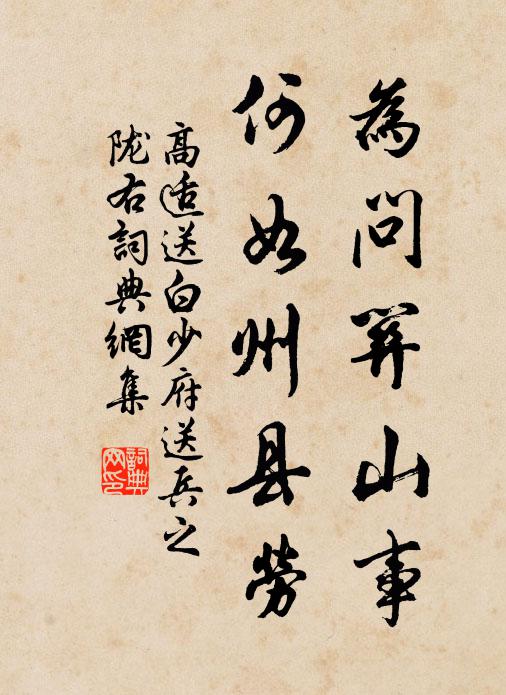 為問關山事
何如州县勞
高適送白少府送兵之
陇右詞典網集
詞典
网印